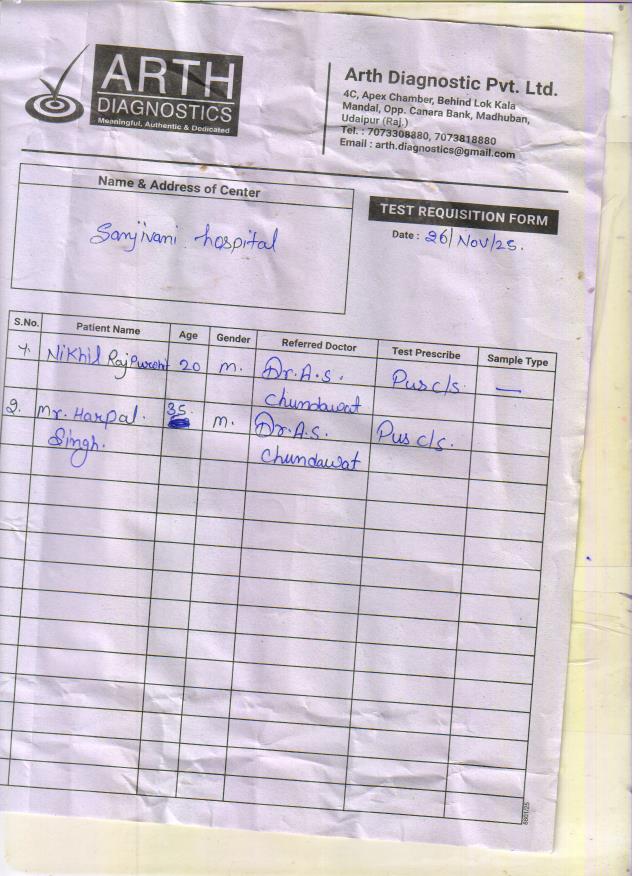 ARTH
DIAGNOSTICS
Meaningful, Authentic & Dedicated
Arth Diagnostic Pvt. Ltd.
4C, Apex Chamber, Behind Lok Kala
Mandal, Opp. Canera Bank, Madhuban,
Udaipur (Raj.)
Tel. : 7073308880, 7073818880
Email : arth.diagnostics@gmail.com
Name & Address of Center
Sanjivani hospital
TEST REQUISITION FORM
Date : 26/Nov/25.
S.No. Patient Name Age Gender Referred Doctor Test Prescribe Sample Type
1. Nikhil Rajpurohit 20 m. Dr. A.S. Pus c/s. —
Chundawat
2. Mr. Harpal. 35. m. Dr. A.S. Pus c/s.
Singh. Chundawat